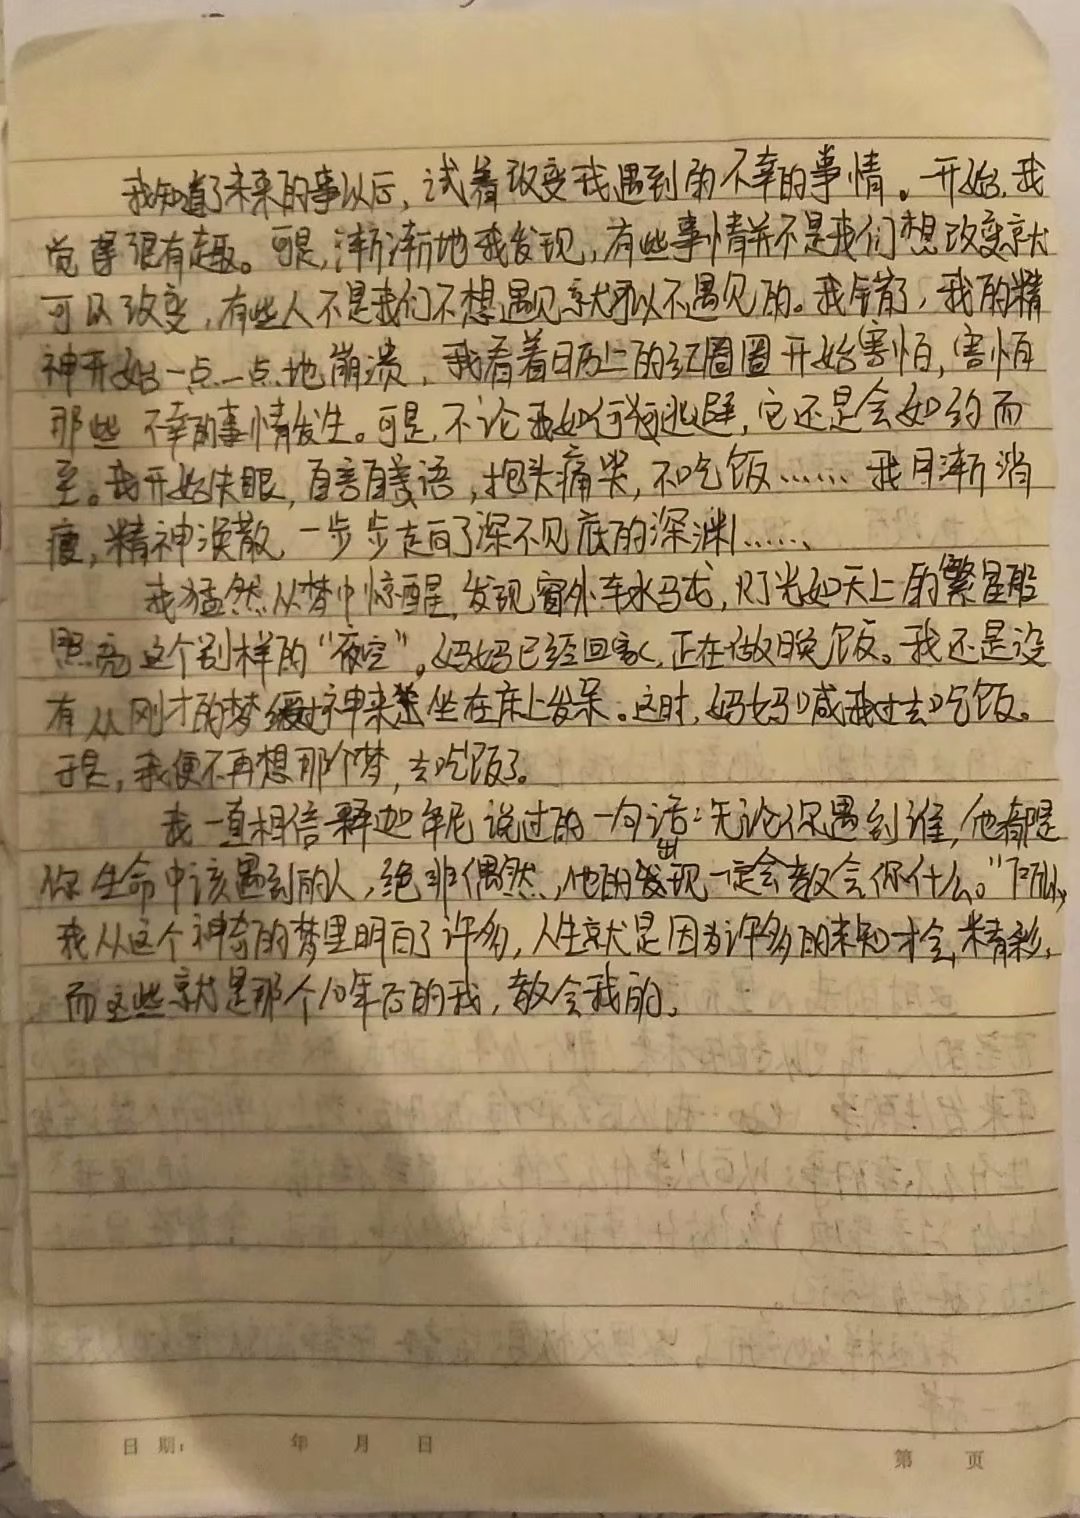 我知道了未来的事以后，试着改变我遇到的不幸的事情。一开始，我
觉得很有趣。可是，渐渐地我发现，有些事情并不是我们想改变就
可以改变，有些人不是我们不想遇见就可以不遇见的。我错了，我的精
神开始一点一点地崩溃，我看着日历上的红圈圈开始害怕，害怕
那些不幸的事情发生。可是，不论我如何逃避，它还是会如约而
至。我开始失眠，自言自语，抱头痛哭，不吃饭……我日渐消
瘦，精神涣散，一步步走向了深不见底的深渊……
我猛然从梦中惊醒，发现窗外车水马龙，灯光如天上的繁星般
照亮这个别样的“夜空”。妈妈已经回家，正在做晚饭。我还是没
有从刚才的梦缓过神来坐在床上发呆。这时，妈妈喊我过去吃饭。
于是，我便不再想那个梦，去吃饭了。
我一直相信释迦牟尼说过的一句话：无论你遇到谁，他都是
你生命中该遇到的人，绝非偶然，他的出现一定会教会你什么。”所以，
我从这个神奇的梦里明白了许多，人生就是因为许多的未知才会精彩，
而这些就是那个10年后的我，教会我的。
日期： 年 月 日
第 页